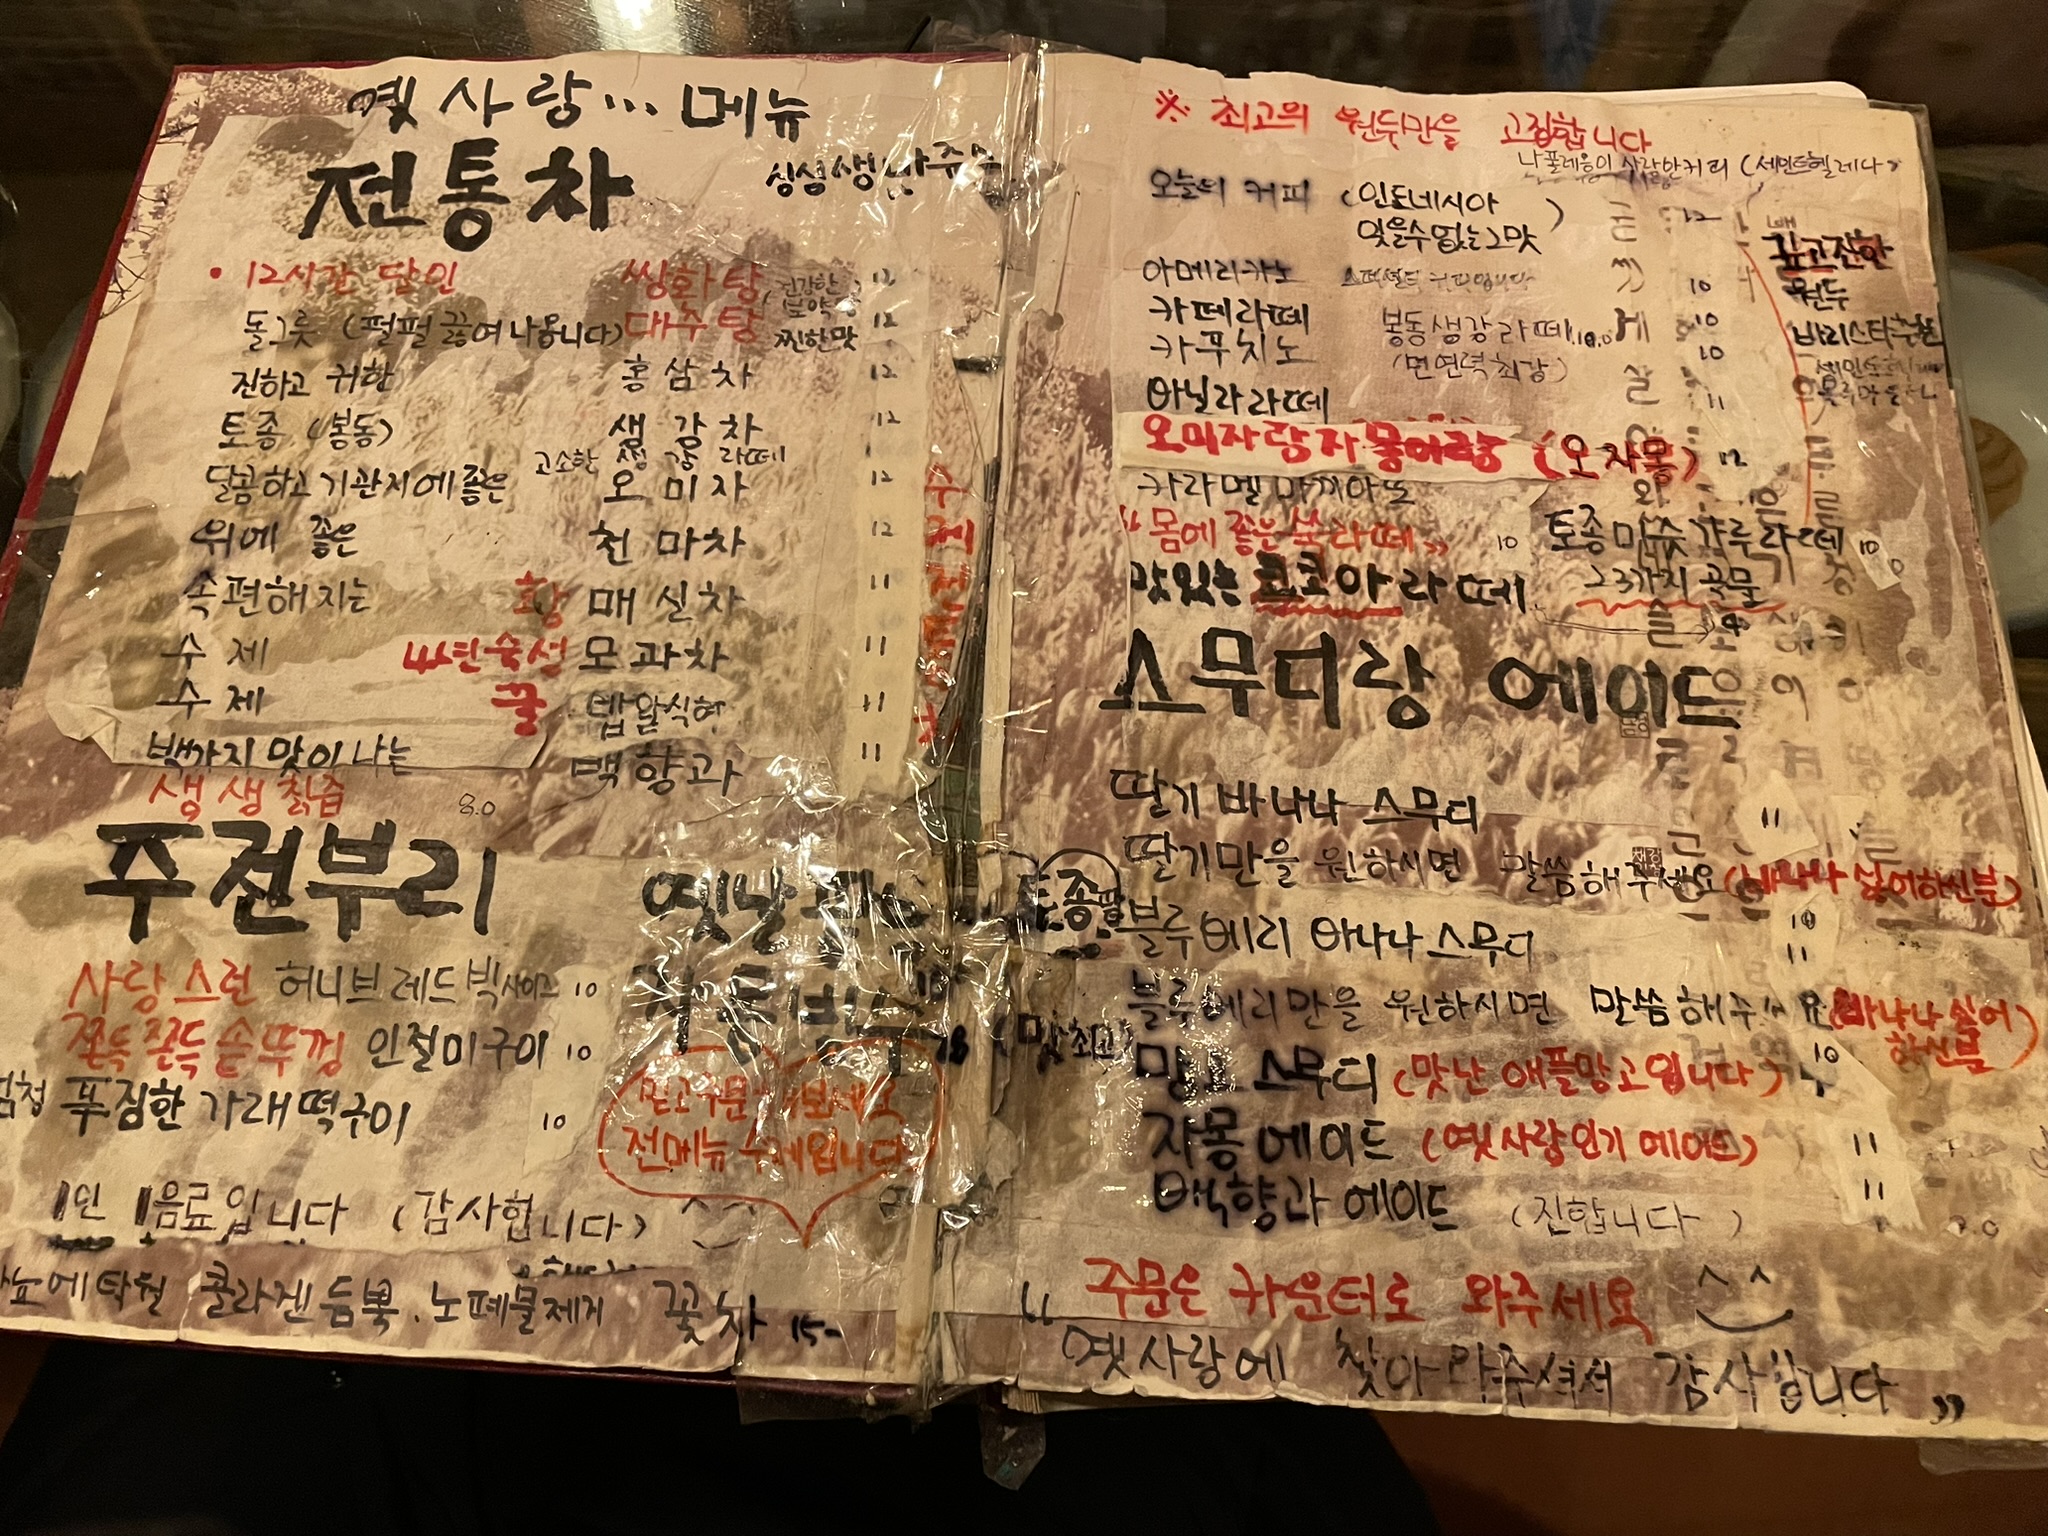 옛사랑... 메뉴
전통차
싱싱생
• 12시간 달인 쌍화탕 (건강한 보약 12
돌그릇 (펄펄 끓여 나옵니다) 대추탕 찐한맛 12
진하고 귀한 홍삼차 12
토종 (봉동) 생강차 12
고소한 생강라떼
달콤하고 기관지에 좋은 오미자 12
위에 좋은 천마차 12
속편해지는 황매실차 11
수제 44년숙성 모과차 11
수제 꿀 11
백가지 맛이 나는 백향과 11
생생칡즙 8.0
주전부리
사랑스런 허니브레드 빅사이즈 10
쫀득쫀득 솥뚜껑 인절미구이 10
푸짐한 가래떡구이 10
옛날
(맛최고)
믿고 주문해보세요
전메뉴 수제입니다
1인 1음료입니다 (감사합니다)
에탁월 콜라겐듬뿍. 노폐물제거 꽃차 15-
※ 최고의 원두만을 고집합니다
나폴레옹이 사랑한커피 (세인트헬레나)
오늘의 커피 (인도네시아) 12
잊을수없는그맛
깊고진한
원두
바리스타추천
아메리카노 스페셜티 커피입니다 10
카페라떼 봉동생강라떼 10.0 10
카푸치노 (면연력최강) 10
바닐라라떼 11
오미자랑자몽이랑 (오자몽) 12
카라멜마끼아또
"몸에 좋은쑥라떼" 10
토종마 가루라떼 10.0
23가지 곡물
맛있는 코코아라떼
스무디랑 에이드
딸기 바나나 스무디 11
딸기만을 원하시면 말씀해주세요 (바나나 싫어하신분) 10
블루베리 바나나스무디 11
블루베리만을 원하시면 말씀해주세요 (바나나 싫어하신분) 10
망고 스무디 (맛난 애플망고입니다)
자몽에이드 (옛사랑인기 에이드) 11
백향과 에이드 (진합니다) 11
" 주문은 카운터로 와주세요
옛사랑에 찾아와주셔서 감사합니다 "